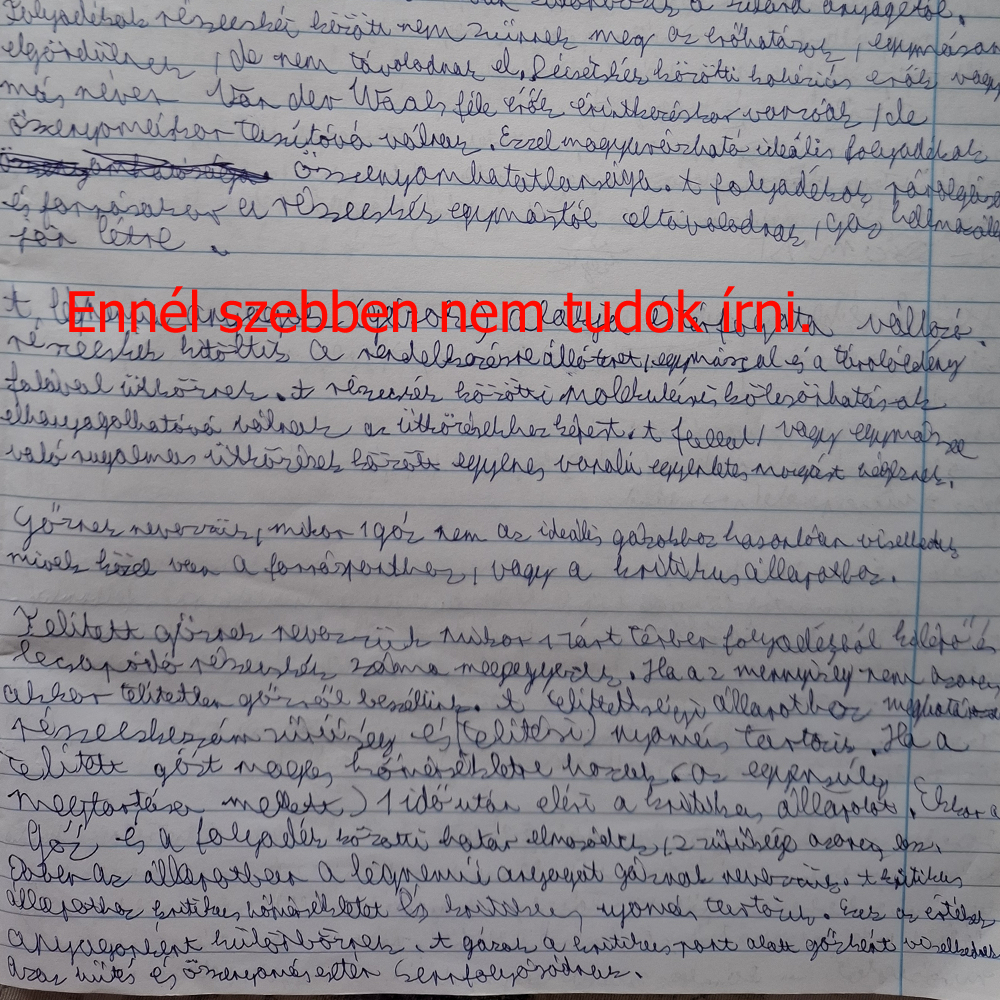 a szilárd anyagétól.
Folyadékok részecskéi között nem szűnnek meg az erőhatások, egymáson
elgördülnek, de nem távolodnak el. Részecskék közötti kohéziós erők vagy
más néven Van der Waals féle erők érintkezéskor vonzóak, de
összenyomáskor taszítóvá válnak. Ezzel magyarázható ideális folyadékok
összenyomhatatlansága. A folyadékok párolgása
és forrásakor a részecskék egymástól eltávolodnak, gáz halmazáll
jön létre.
Ennél szebben nem tudok írni.
A légnemű anyagok alakja és térfogata változó.
részecskék kitöltik a rendelkezésre álló teret, egymással és a tárolóedény
falával ütköznek. A részecskék közötti molekuláris kölcsönhatások
elhanyagolhatóvá válnak az ütközésekhez képest. A fallal, vagy egymással
való rugalmas ütközések között egyenes vonalú egyenletes mozgást végeznek.
Gőznek nevezzük, mikor 1 gáz nem az ideális gázokhoz hasonlóan viselkedik
mivel közel van a forrásponthoz, vagy a kritikus állapothoz.
Telített gőznek nevezzük mikor 1 zárt térben folyadékból kilépő és
lecsapódó részecskék száma megegyezik. Ha a mennyiség nem azonos
akkor telítetlen gőzről beszélünk. A telítettségi állapothoz meghatározott
részecskeszám sűrűség és (telítési) nyomás tartozik. Ha a
telített gőzt magas hőmérsékletre hozzuk (az egyensúly
megtartása mellett) 1 idő után eléri a kritikus állapotot. Ekkor a
Gőz és a folyadék közötti határ elmosódik, 2 sűrűség azonos lesz.
Ebben az állapotban a légnemű anyagot gáznak nevezzük. A kritikus
állapothoz kritikus hőmérsékletet és kritikus nyomás tartozik. Ezek az értékek
anyagonként különböznek. A gázok a kritikus pont alatt gőzként viselkednek
azaz hűtés és összenyomás esetén cseppfolyósodnak.